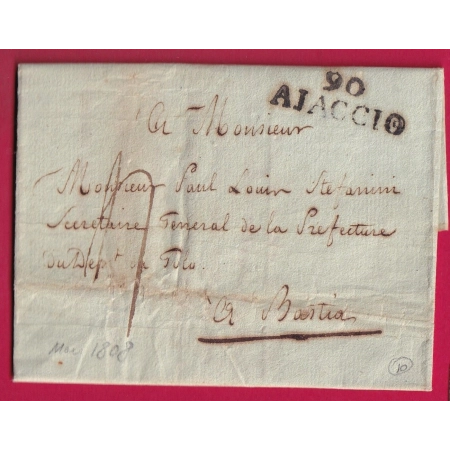 90
AJACCIO
A Monsieur
Monsieur Paul Louis Stefanini
Secretaire General de la Prefecture
du Dept. du Golo.
A Bastia
1808
10